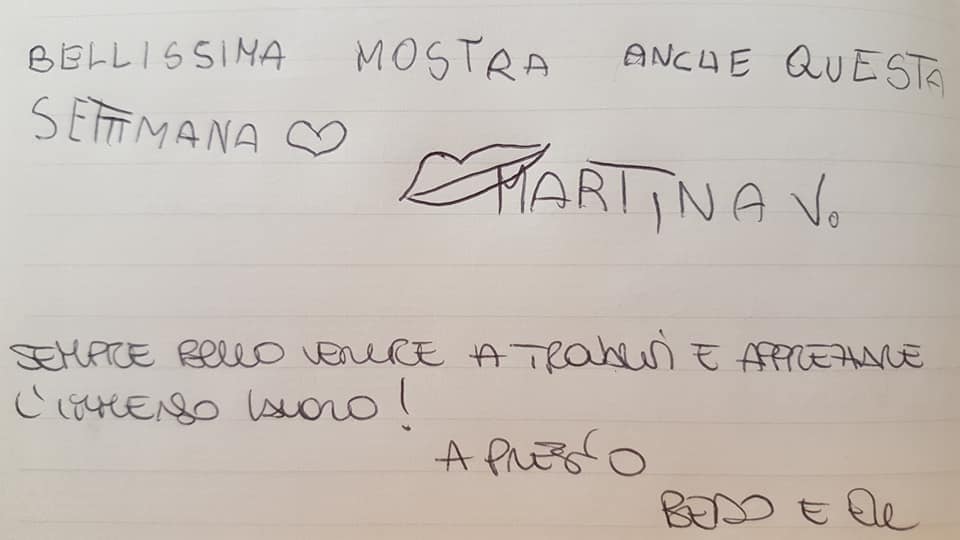 BELLISSIMA MOSTRA ANCHE QUESTA
SETTIMANA
MARTINA V.
SEMPRE BELLO VENIRE A TROVARVI E APPREZZARE
L'IMMENSO LAVORO!
A PRESTO
E